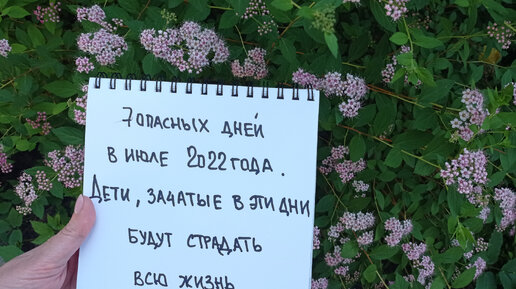 7 опасных дней
в июле 2022 года.
Дети, зачатые в эти дни
будут страдать
всю жизнь